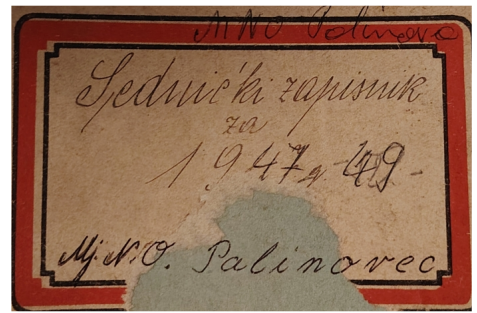 MNO Palinovec
Sjednički zapisnik
za
1947 g. - 49 -
Mj. N. O. Palinovec